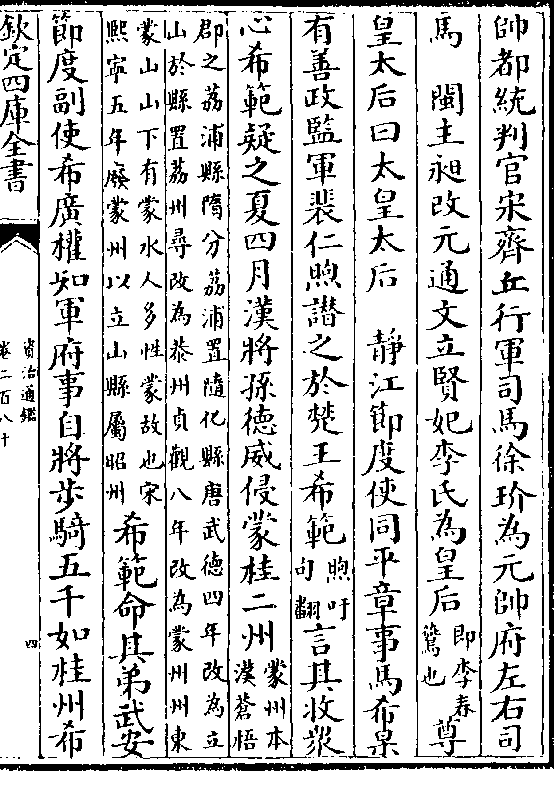 帥都統判官宋齊丘行軍司馬徐玠為元帥府左右司
馬　閩主昶改元通文立賢妃李氏為皇后即李春鷰也尊
皇太后曰太皇太后　静江節度使同平章事馬希杲
有善政監軍裴仁煦譖之於楚王希範煦吁句翻言其收衆
心希範疑之夏四月漢將孫德威侵蒙桂二州蒙州本漢蒼梧
郡之荔浦縣隋分荔浦置隨化縣唐武德四年改為立
山於縣置荔州尋改為㳟州貞觀八年改為蒙州州東
蒙山山下有蒙水人多性蒙故也宋
熙寧五年廢蒙州以立山縣屬昭州希範命其弟武安
節度副使希廣權知軍府事自將步騎五千如桂州希
欽定四庫全書
資治通鑑
卷二百八十
四